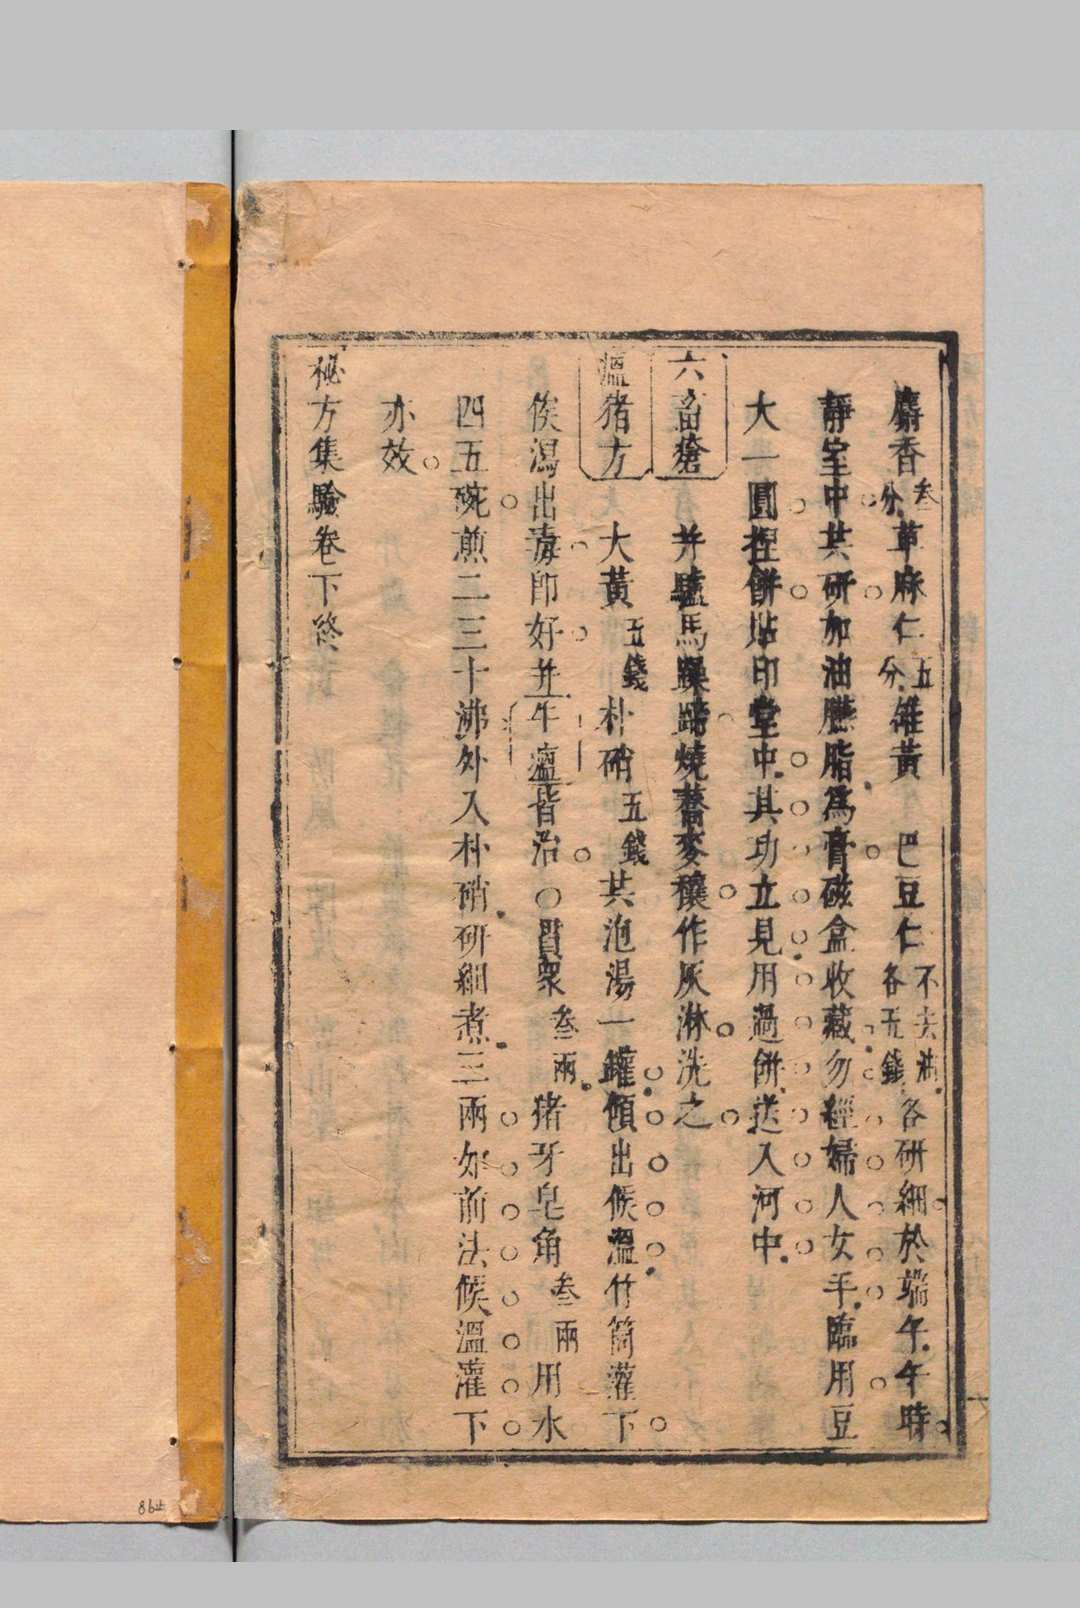 麝香叁分草麻仁五分雄黃 巴豆仁不去油各五錢各硏細於端午午時
靜室中共硏加油臙脂爲膏磁盒收藏勿經婦人女手臨用豆
大一圓捏餅貼印堂中其功立見用過餅送入河中
六畜瘡 并驢馬躁蹄燒蕎麥穰作灰淋洗之
瘟猪方 大黃五錢朴硝五錢共泡湯一罐傾出候溫竹筒灌下
俟瀉出毒卽好並牛瘟皆治○貫衆叁兩猪牙皂角叁兩用水
四五碗煎二三十沸外入朴硝硏細煮三兩如前法候溫灌下
亦效
祕方集驗卷下終